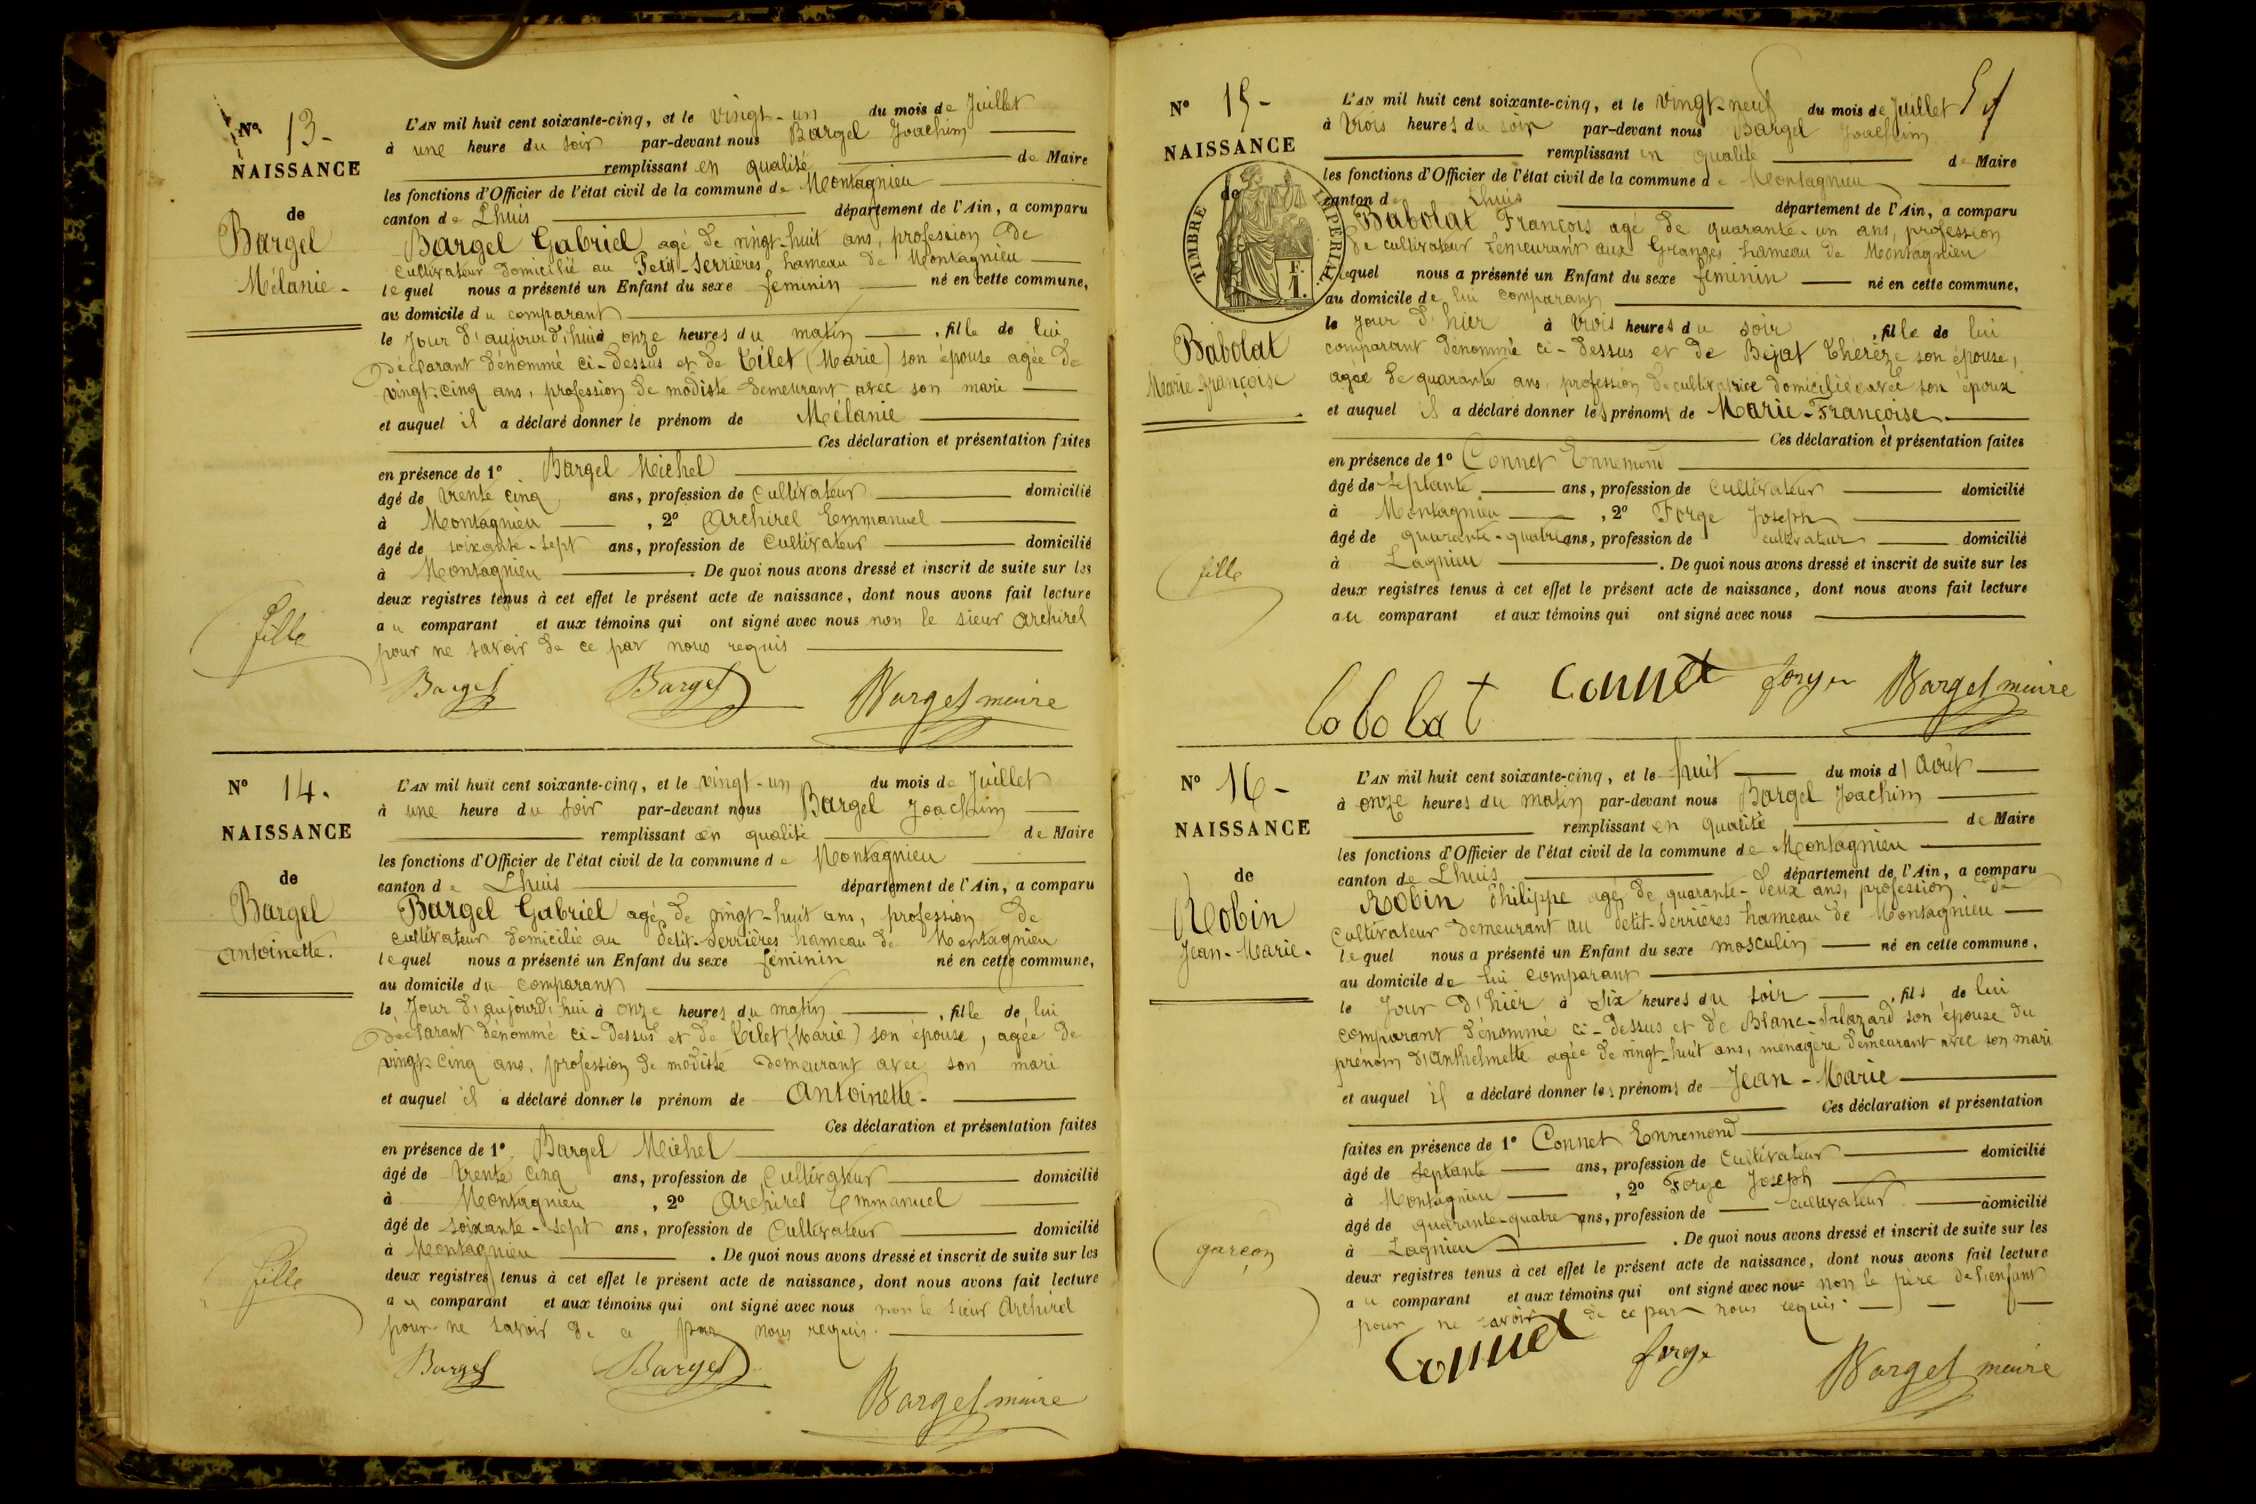 N° 13-
NAISSANCE
de
Bargel
Mélanie-
fille
L'AN mil huit cent soixante-cinq, et le vingt-un du mois de Juillet
à une heure du soir par-devant nous Bargel Joachim
remplissant en qualité de Maire
les fonctions d'Officier de l'état civil de la commune de Montagnieu
canton de Lhuis département de l'Ain, a comparu
Bargel Gabriel agé de vingt-huit ans, profession De
cultivateur domicilié au Petit-Serrières hameau de Montagnieu
lequel nous a présenté un Enfant du sexe féminin né en cette commune,
au domicile du comparant
le Jour d'aujourd'hui à onze heures du matin, fille de lui
déclarant dénommé ci-dessus et de Tilet (Marie) son épouse agée de
vingt-cinq ans, profession de modiste demeurant avec son mari
et auquel il a déclaré donner le prénom de Mélanie
Ces déclaration et présentation faites
en présence de 1° Bargel Michel
âgé de trente cinq ans, profession de cultivateur domicilié
à Montagnieu, 2° Archirel Emmanuel
âgé de soixante-sept ans, profession de cultivateur domicilié
à Montagnieu. De quoi nous avons dressé et inscrit de suite sur les
deux registres tenus à cet effet le présent acte de naissance, dont nous avons fait lecture
au comparant et aux témoins qui ont signé avec nous non le sieur Archirel
pour ne savoir de ce par nous requis
Bargel Bargel Bargel maire
N° 14.
NAISSANCE
de
Bargel
Antoinette.
fille
L'AN mil huit cent soixante-cinq, et le vingt-un du mois de Juillet
à une heure du soir par-devant nous Bargel Joachim
remplissant en qualité de Maire
les fonctions d'Officier de l'état civil de la commune de Montagnieu
canton de Lhuis département de l'Ain, a comparu
Bargel Gabriel agé de vingt-huit ans, profession De
cultivateur domicilié au Petit-Serrières hameau de Montagnieu
lequel nous a présenté un Enfant du sexe féminin né en cette commune,
au domicile du comparant
le Jour d'aujourd'hui à onze heures du matin, fille de lui
déclarant dénommé ci-dessus et de Tilet (Marie) son épouse, agée de
vingt-cinq ans, profession de modiste demeurant avec son mari
et auquel il a déclaré donner le prénom de Antoinette-
Ces déclaration et présentation faites
en présence de 1° Bargel Michel
âgé de trente cinq ans, profession de cultivateur domicilié
à Montagnieu, 2° Archirel Emmanuel
âgé de soixante-sept ans, profession de cultivateur domicilié
à Montagnieu. De quoi nous avons dressé et inscrit de suite sur les
deux registres tenus à cet effet le présent acte de naissance, dont nous avons fait lecture
au comparant et aux témoins qui ont signé avec nous non le sieur Archirel
pour ne savoir de ce par nous requis.
Bargel Bargel Bargel maire
N° 15-
NAISSANCE
de
TIMBRE IMPERIAL
F.
1.
Babolat
Marie-françoise
fille
L'AN mil huit cent soixante-cinq, et le vingt-neuf du mois de Juillet
à trois heures du soir par-devant nous Bargel Joachim
remplissant en qualité de Maire
les fonctions d'Officier de l'état civil de la commune de Montagnieu
canton de Lhuis département de l'Ain, a comparu
Babolat François agé de quarante-un ans, profession
de cultivateur demeurant aux Granges hameau de Montagnieu
lequel nous a présenté un Enfant du sexe féminin né en cette commune,
au domicile de lui comparant
le Jour d'hier à trois heures du soir, fille de lui
comparant dénommé ci-dessus et de Béjat Thérèze son épouse,
agée de quarante ans, profession de cultivatrice domiciliée avec son époux
et auquel il a déclaré donner les prénoms de Marie-Françoise
Ces déclaration et présentation faites
en présence de 1° Connet Ennemond
âgé de septante ans, profession de cultivateur domicilié
à Montagnieu, 2° Forge Joseph
âgé de quarante-quatre ans, profession de cultivateur domicilié
à Lagnieu. De quoi nous avons dressé et inscrit de suite sur les
deux registres tenus à cet effet le présent acte de naissance, dont nous avons fait lecture
au comparant et aux témoins qui ont signé avec nous
bobolat connet forge Bargel maire
N° 16-
NAISSANCE
de
Robin
Jean-Marie.
garçon
L'AN mil huit cent soixante-cinq, et le huit du mois d'Août
à onze heures du matin par-devant nous Bargel Joachim
remplissant en qualité de Maire
les fonctions d'Officier de l'état civil de la commune de Montagnieu
canton de Lhuis département de l'Ain, a comparu
Robin Philippe agé de quarante-deux ans, profession de
cultivateur demeurant au Petit-Serrières hameau de Montagnieu
lequel nous a présenté un Enfant du sexe masculin né en cette commune,
au domicile de lui comparant
le Jour d'hier à six heures du soir, fils de lui
comparant dénommé ci-dessus et de Blanc-Salazard son épouse du
prénom d'Anthelmette agée de vingt-huit ans, ménagère demeurant avec son mari
et auquel il a déclaré donner les prénoms de Jean-Marie
Ces déclaration et présentation
faites en présence de 1° Connet Ennemond
âgé de septante ans, profession de cultivateur domicilié
à Montagnieu, 2° Forge Joseph
âgé de quarante-quatre ans, profession de cultivateur domicilié
à Lagnieu. De quoi nous avons dressé et inscrit de suite sur les
deux registres tenus à cet effet le présent acte de naissance, dont nous avons fait lecture
au comparant et aux témoins qui ont signé avec nous non le père de l'enfant
pour ne savoir de ce par nous requis.
Connet forge Bargel maire